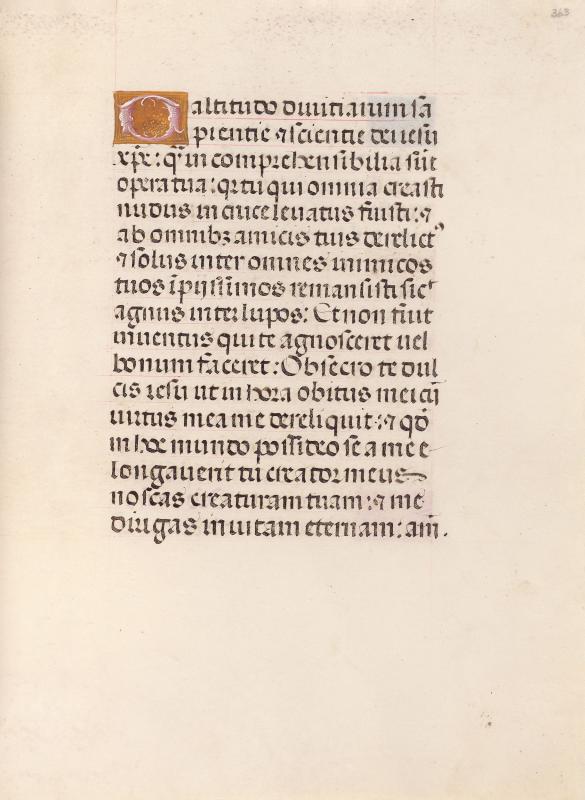 363
O altitudo diuitiarum sa
pientie ⁊ scientie dei iesu
xp̄e: q̄ incomprehensibilia sūt
opera tua: qr̄ tu qui omnia creasti
nudus in cruce leuatus fuisti: ⁊
ab omnibꝫ amicis tuis derelictꝰ
⁊ solus inter omnes inimicos
tuos īpijssimos remansisti sicᵗ
agnus inter lupos: Et non fuit
inuentus qui te agnosceret uel
bonum faceret: Obsecro te dul
cis iesu ut in hora obitus mei cū
uirtus mea me dereliquit: ⁊ qđ
in hoc mundo possideo se a me e
longauerit tu creator meus
noscas creaturam tuam: ⁊ me
dirigas in uitam eternam: am̄.